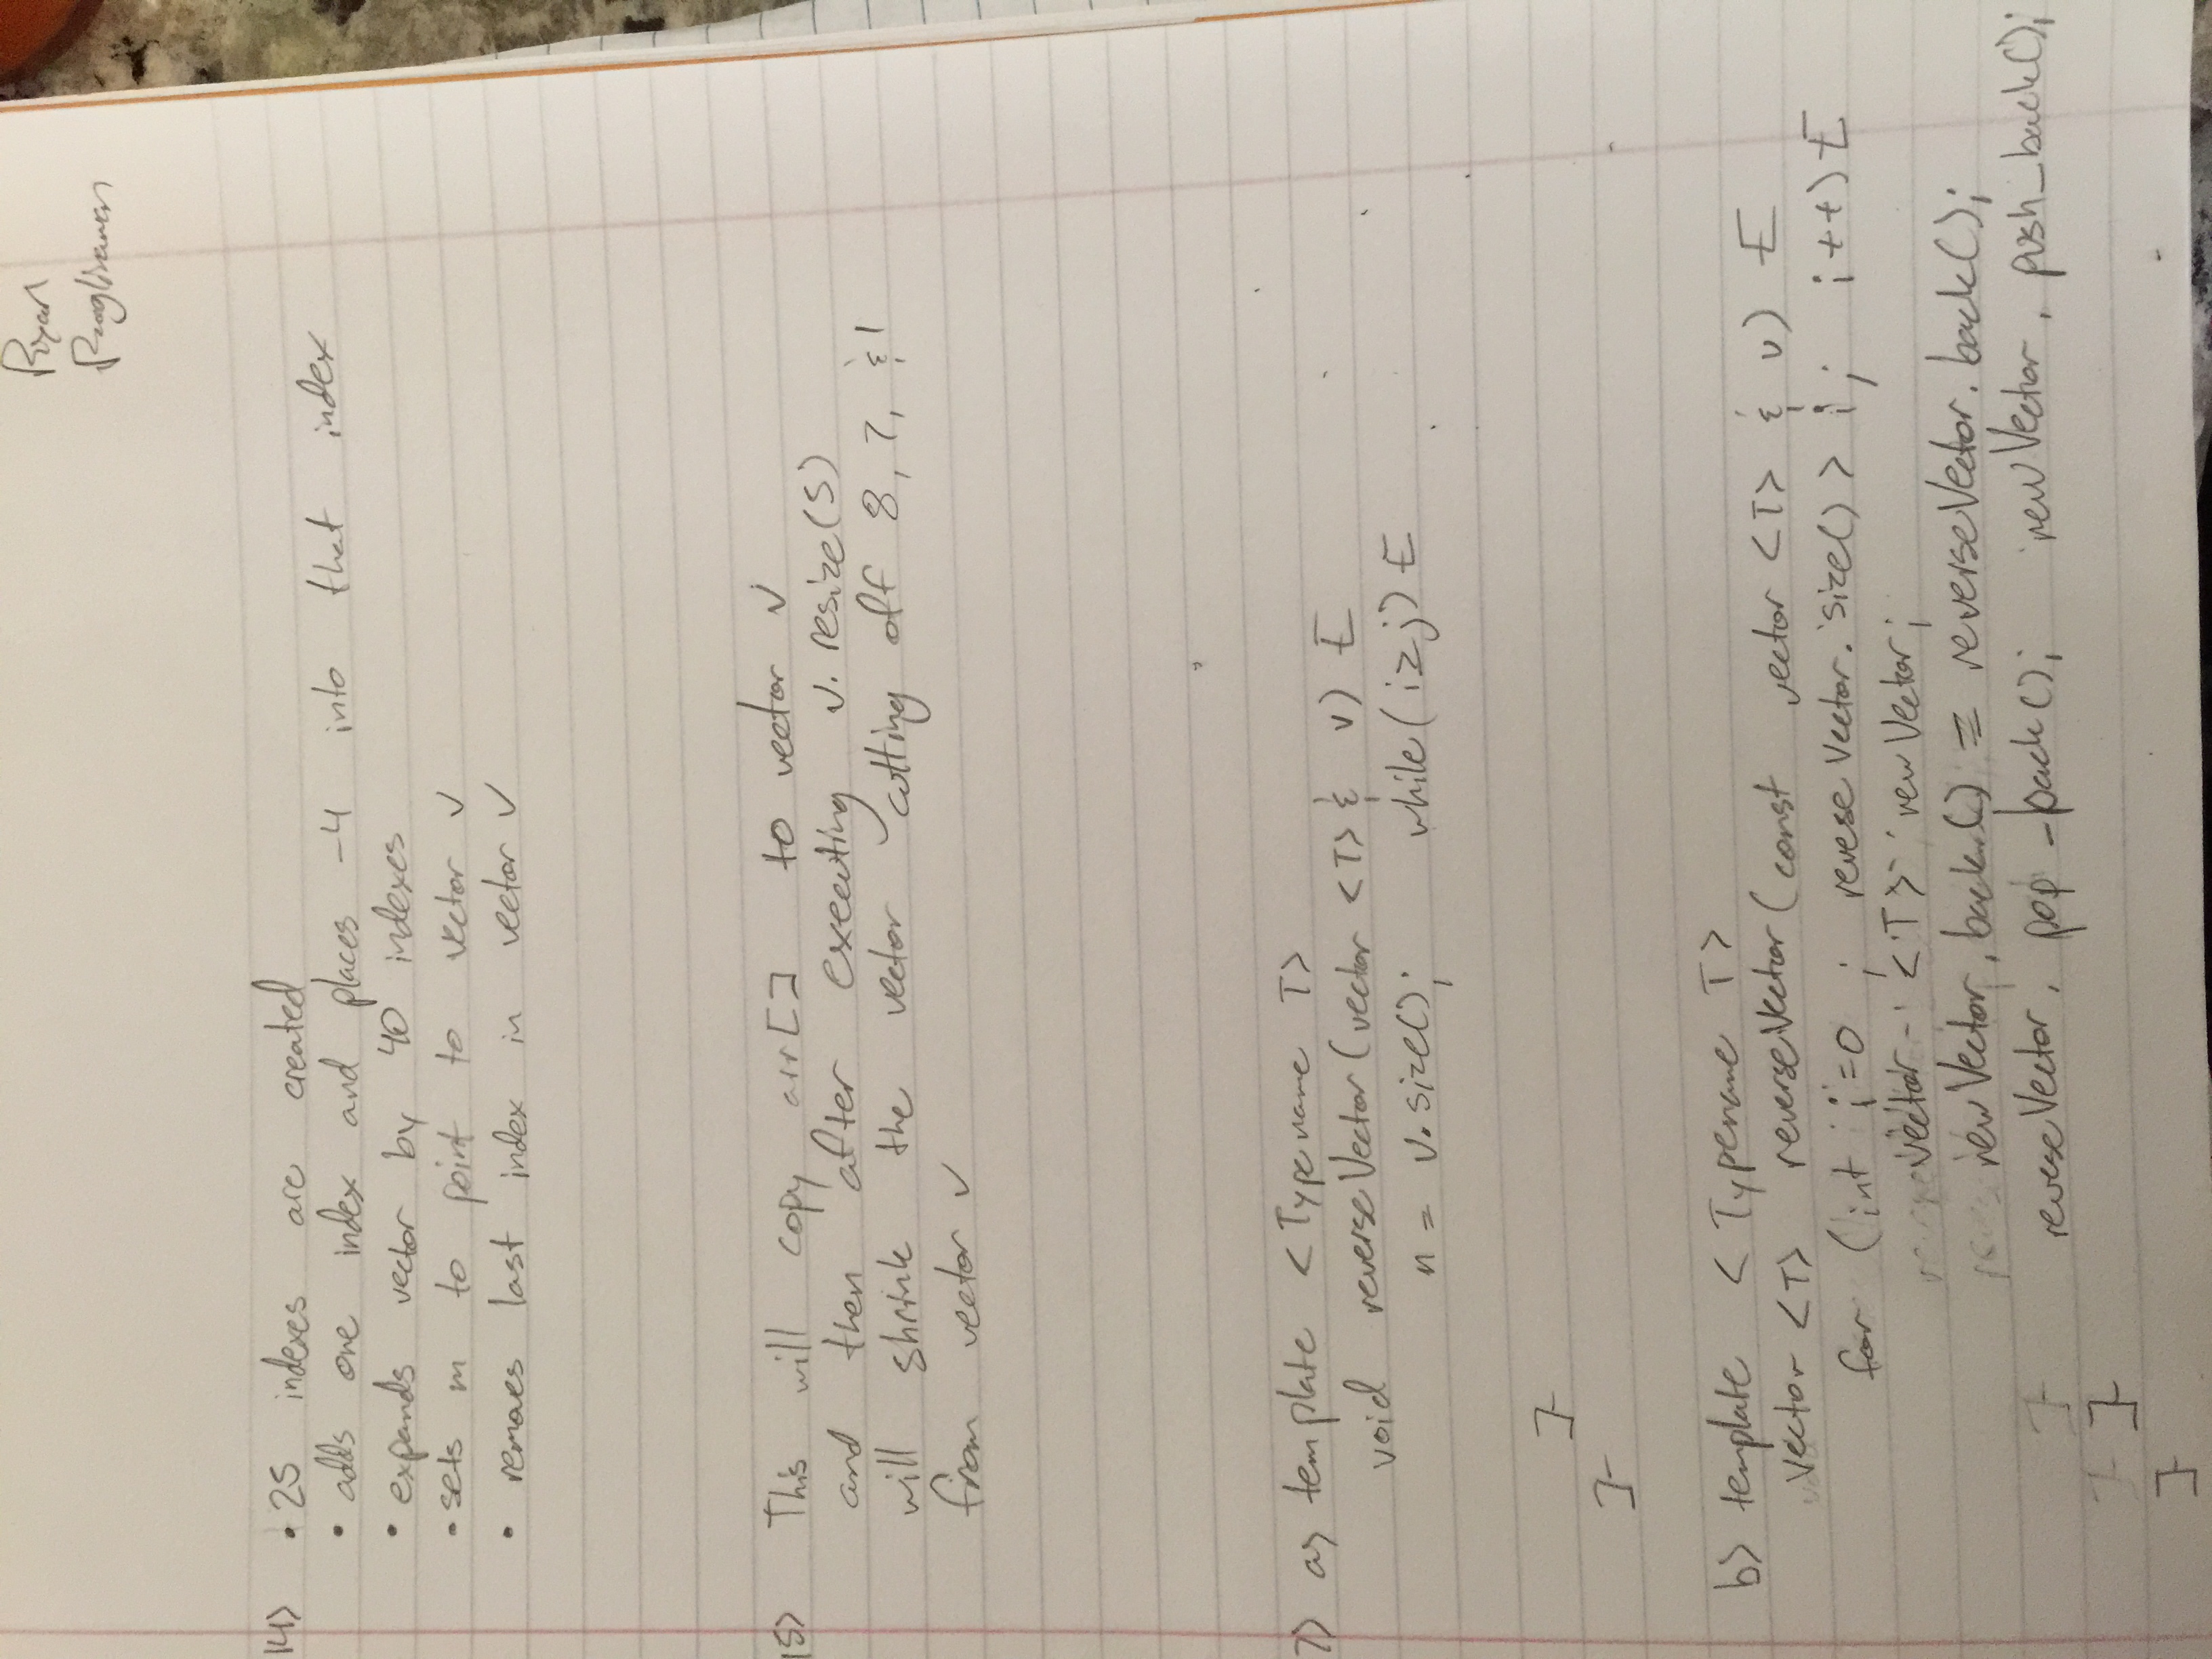 Ryan
14) • 25 indexes are created
• adds one index and places -4 into that index
• expands vector by 40 indexes
• sets m to point to vector v
• removes last index in vector v
15) This will copy arr[] to vector v
and then after executing v.resize(5)
will shrink the vector cutting off 8, 7, & 1
from vector v
7) a) template <Typename T>
void reverseVector(vector <T> & v) {
n = v.size(); while(i≥j) {
}
}
b) template <Typename T>
vector <T> reverseVector(const vector <T> & v) {
for (int i=0 ; reveseVector.size() > i; i++) {
vector <T> newVector;
newVector.back() = reverseVector.back();
reveseVector.pop_back(); newVector.push_back();
}
}
}